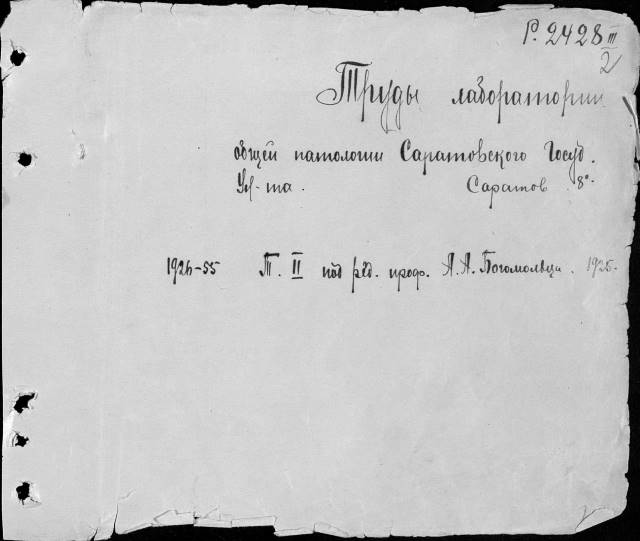 Р. 2428 III
2
Труды лаборатории
общей патологии Саратовского Госуд.
Ун-та. Саратов 8°.
1926-55 Т. II под ред. проф. А. А. Богомольца. 1925.